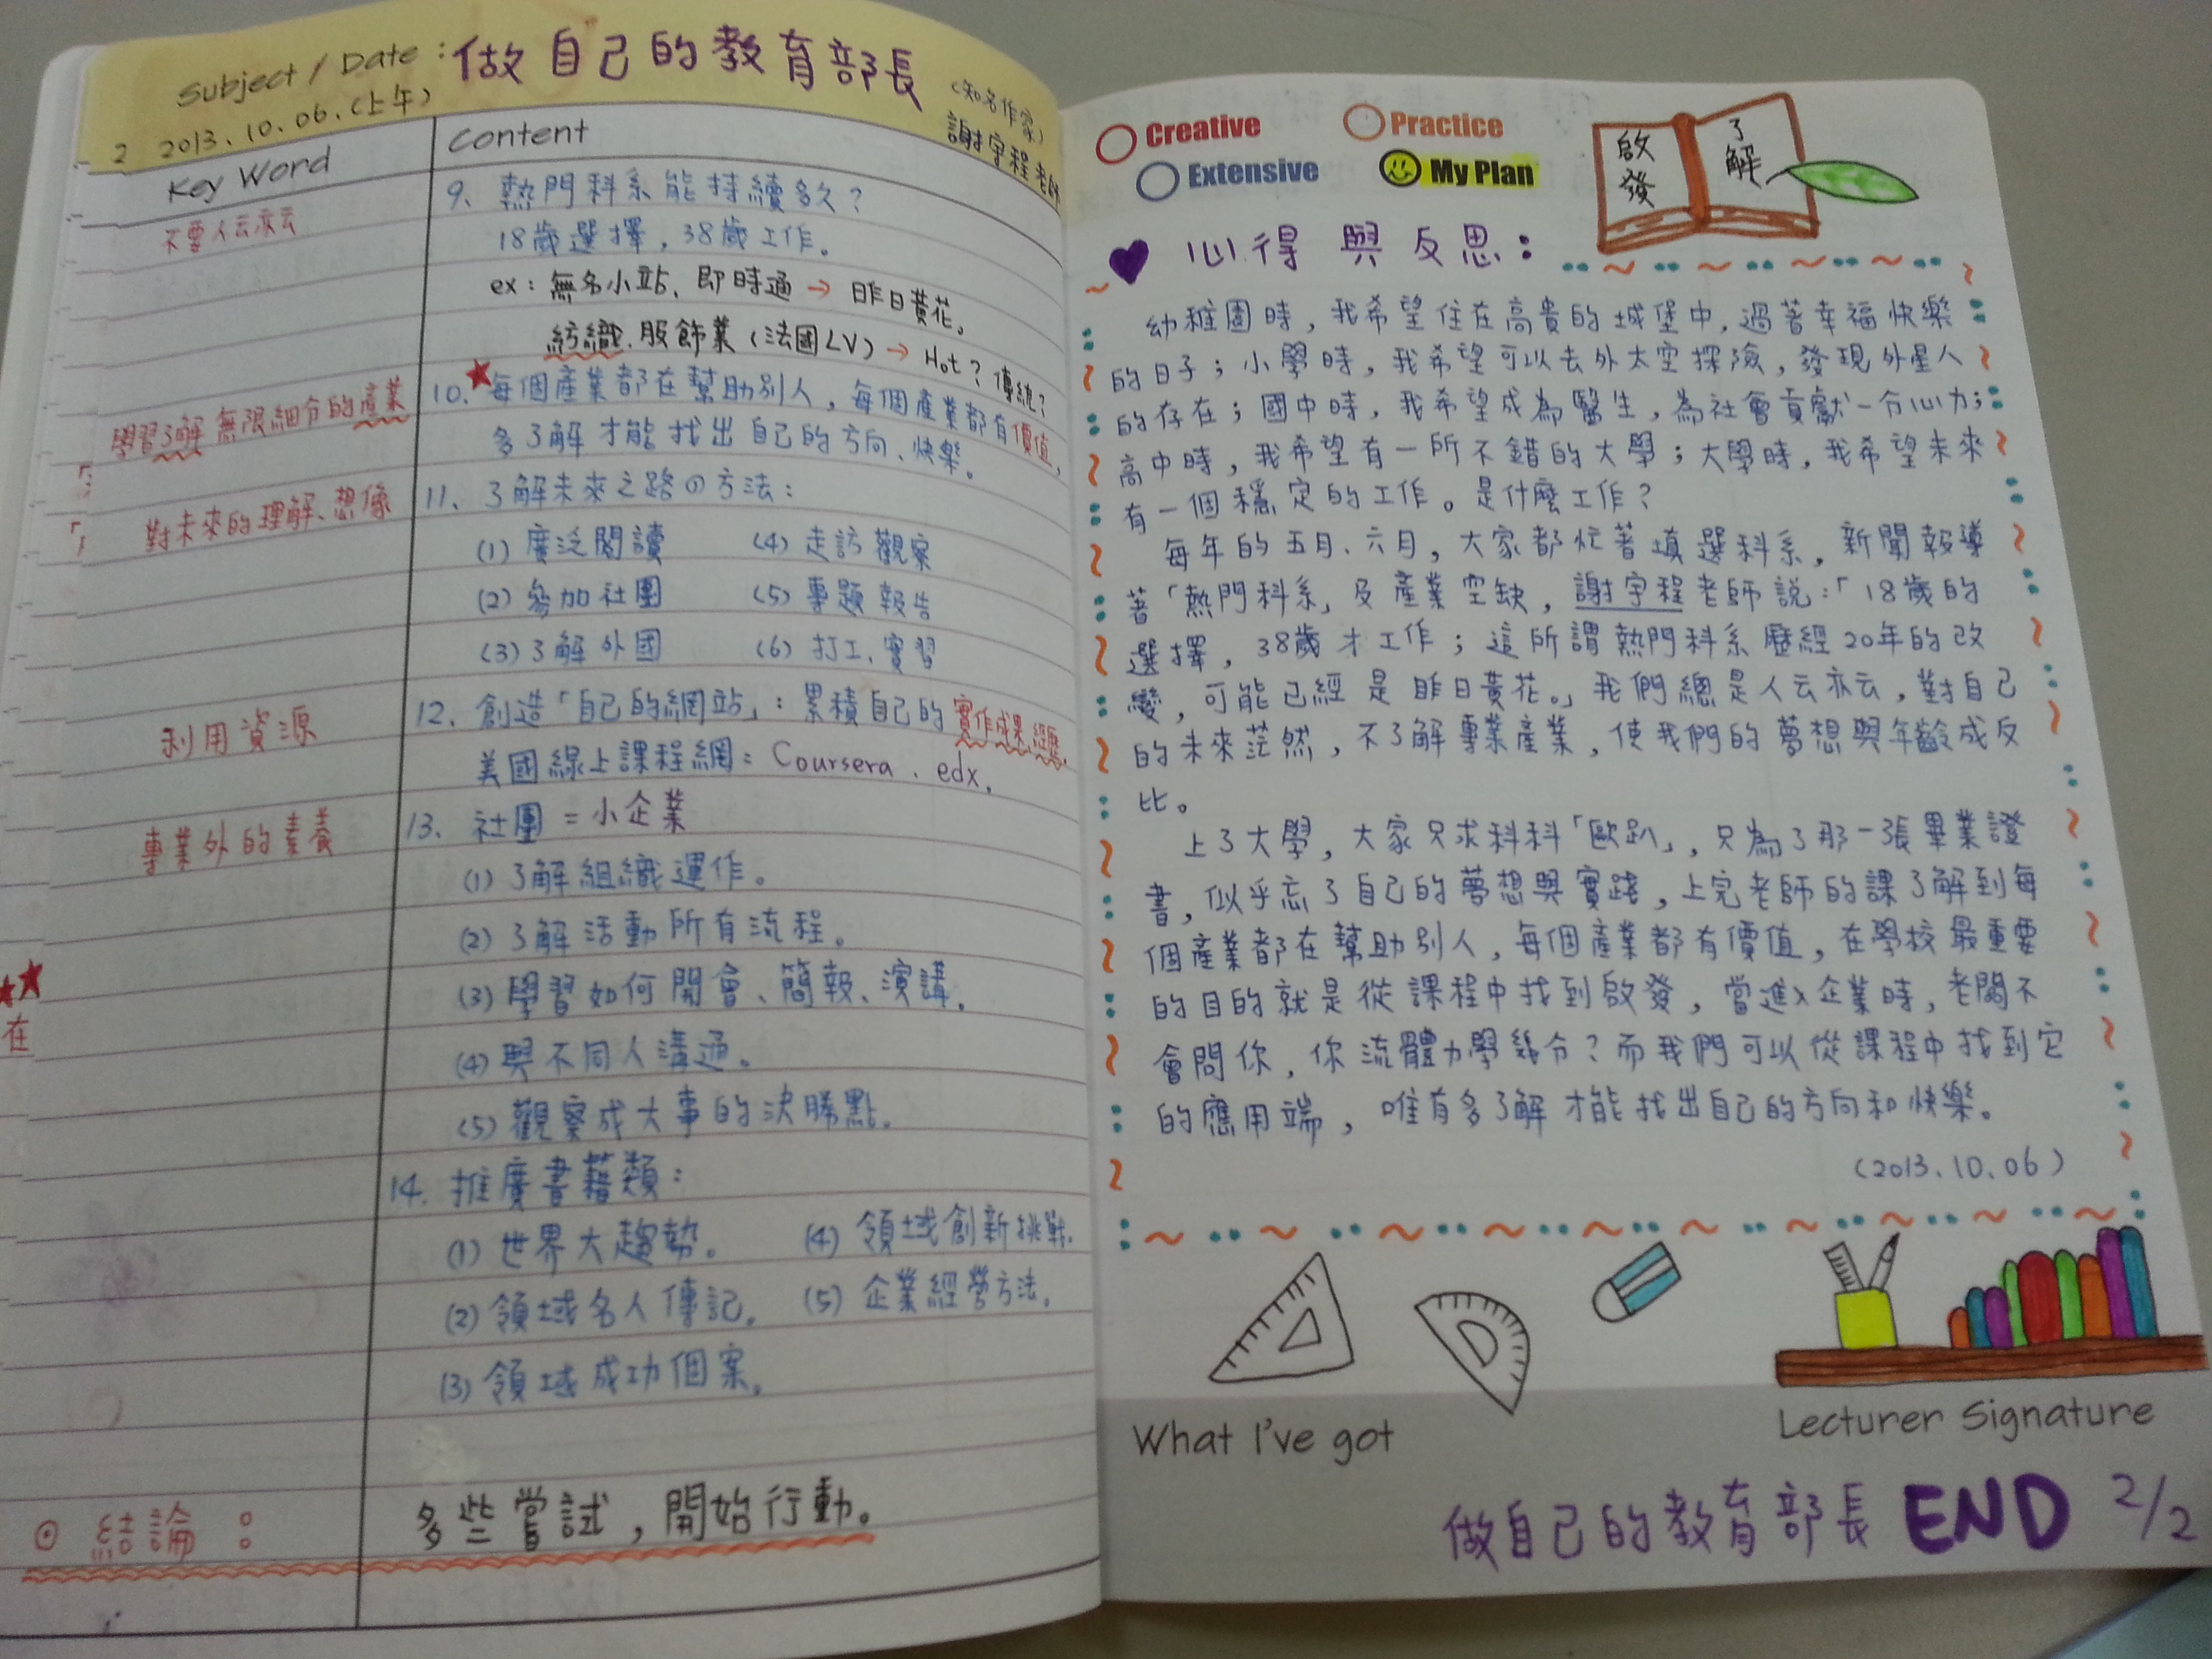 Subject / Date : 做自己的教育部長
2 2013.10.06.(上午)
(知名作家)
謝宇程老師
Key Word
Content
不要人云亦云
9. 熱門科系能持續多久?
18歲選擇,38歲工作。
ex: 無名小站、即時通 → 昨日黃花。
紡織.服飾業(法國LV) → Hot? 傳統?
學習了解無限細分的產業
10. ★每個產業都在幫助別人,每個產業都有價值,
多了解才能找出自己的方向、快樂。
對未來的理解、想像
11. 了解未來之路の方法:
(1) 廣泛閱讀 (4) 走訪觀察
(2) 參加社團 (5) 專題報告
(3) 了解外國 (6) 打工、實習
利用資源
12. 創造「自己的網站」: 累積自己的實作成果、經歷.
美國線上課程網: Coursera . edx.
專業外的素養
13. 社團 = 小企業
(1) 了解組織運作。
(2) 了解活動所有流程。
(3) 學習如何開會、簡報、演講。
(4) 與不同人溝通。
(5) 觀察成大事的決勝點。
★★
在
14. 推廣書籍類:
(1) 世界大趨勢。 (4) 領域創新挑戰.
(2) 領域名人傳記。 (5) 企業經營方法。
(3) 領域成功個案。
⊙ 結論 : 多些嘗試,開始行動。
Creative Practice
Extensive My Plan
啟發 了解
心得與反思:
幼稚園時,我希望住在高貴的城堡中,過著幸福快樂
的日子;小學時,我希望可以去外太空探險,發現外星人
的存在;國中時,我希望成為醫生,為社會貢獻一分心力;
高中時,我希望有一所不錯的大學;大學時,我希望未來
有一個穩定的工作。是什麼工作?
每年的五月、六月,大家都忙著填選科系,新聞報導
著「熱門科系」及產業空缺,謝宇程老師說:「18歲的
選擇,38歲才工作;這所謂熱門科系歷經20年的改
變,可能已經是昨日黃花。」我們總是人云亦云,對自己
的未來茫然,不了解專業產業,使我們的夢想與年齡成反
比。
上了大學,大家只求科科「歐趴」,只為了那一張畢業證
書,似乎忘了自己的夢想與實踐,上完老師的課了解到每
個產業都在幫助別人,每個產業都有價值,在學校最重要
的目的就是從課程中找到啟發,當進入企業時,老闆不
會問你,你流體力學幾分?而我們可以從課程中找到它
的應用端,唯有多了解才能找出自己的方向和快樂。
(2013.10.06)
What I've got
Lecturer Signature
做自己的教育部長 END 2/2